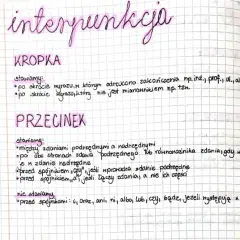 interpunkcja
KROPKA
stawiamy:
• po skrócie wyrazu, w którym odrzucono zakończenia np. inż., prof., ul., al
• po skrócie wyrazu, który nie jest mianownikiem np.
PRZECINEK
stawiamy:
• między zdaniami podrzędnymi a nadrzędnymi
• po obu stronach zdania podrzędnego lub równoważnika zdania, gdy
w zdanie nadrzędne
• przed spójnikiem, gdy wprowadza zdanie podrzędne
• przed spójnikiem, a jeśli łączy zdania, a nie ich części
nie stawiamy
• przed spójnikami: i, oraz, ani, ni, albo, lub, czy, bądź, jeżeli występuje